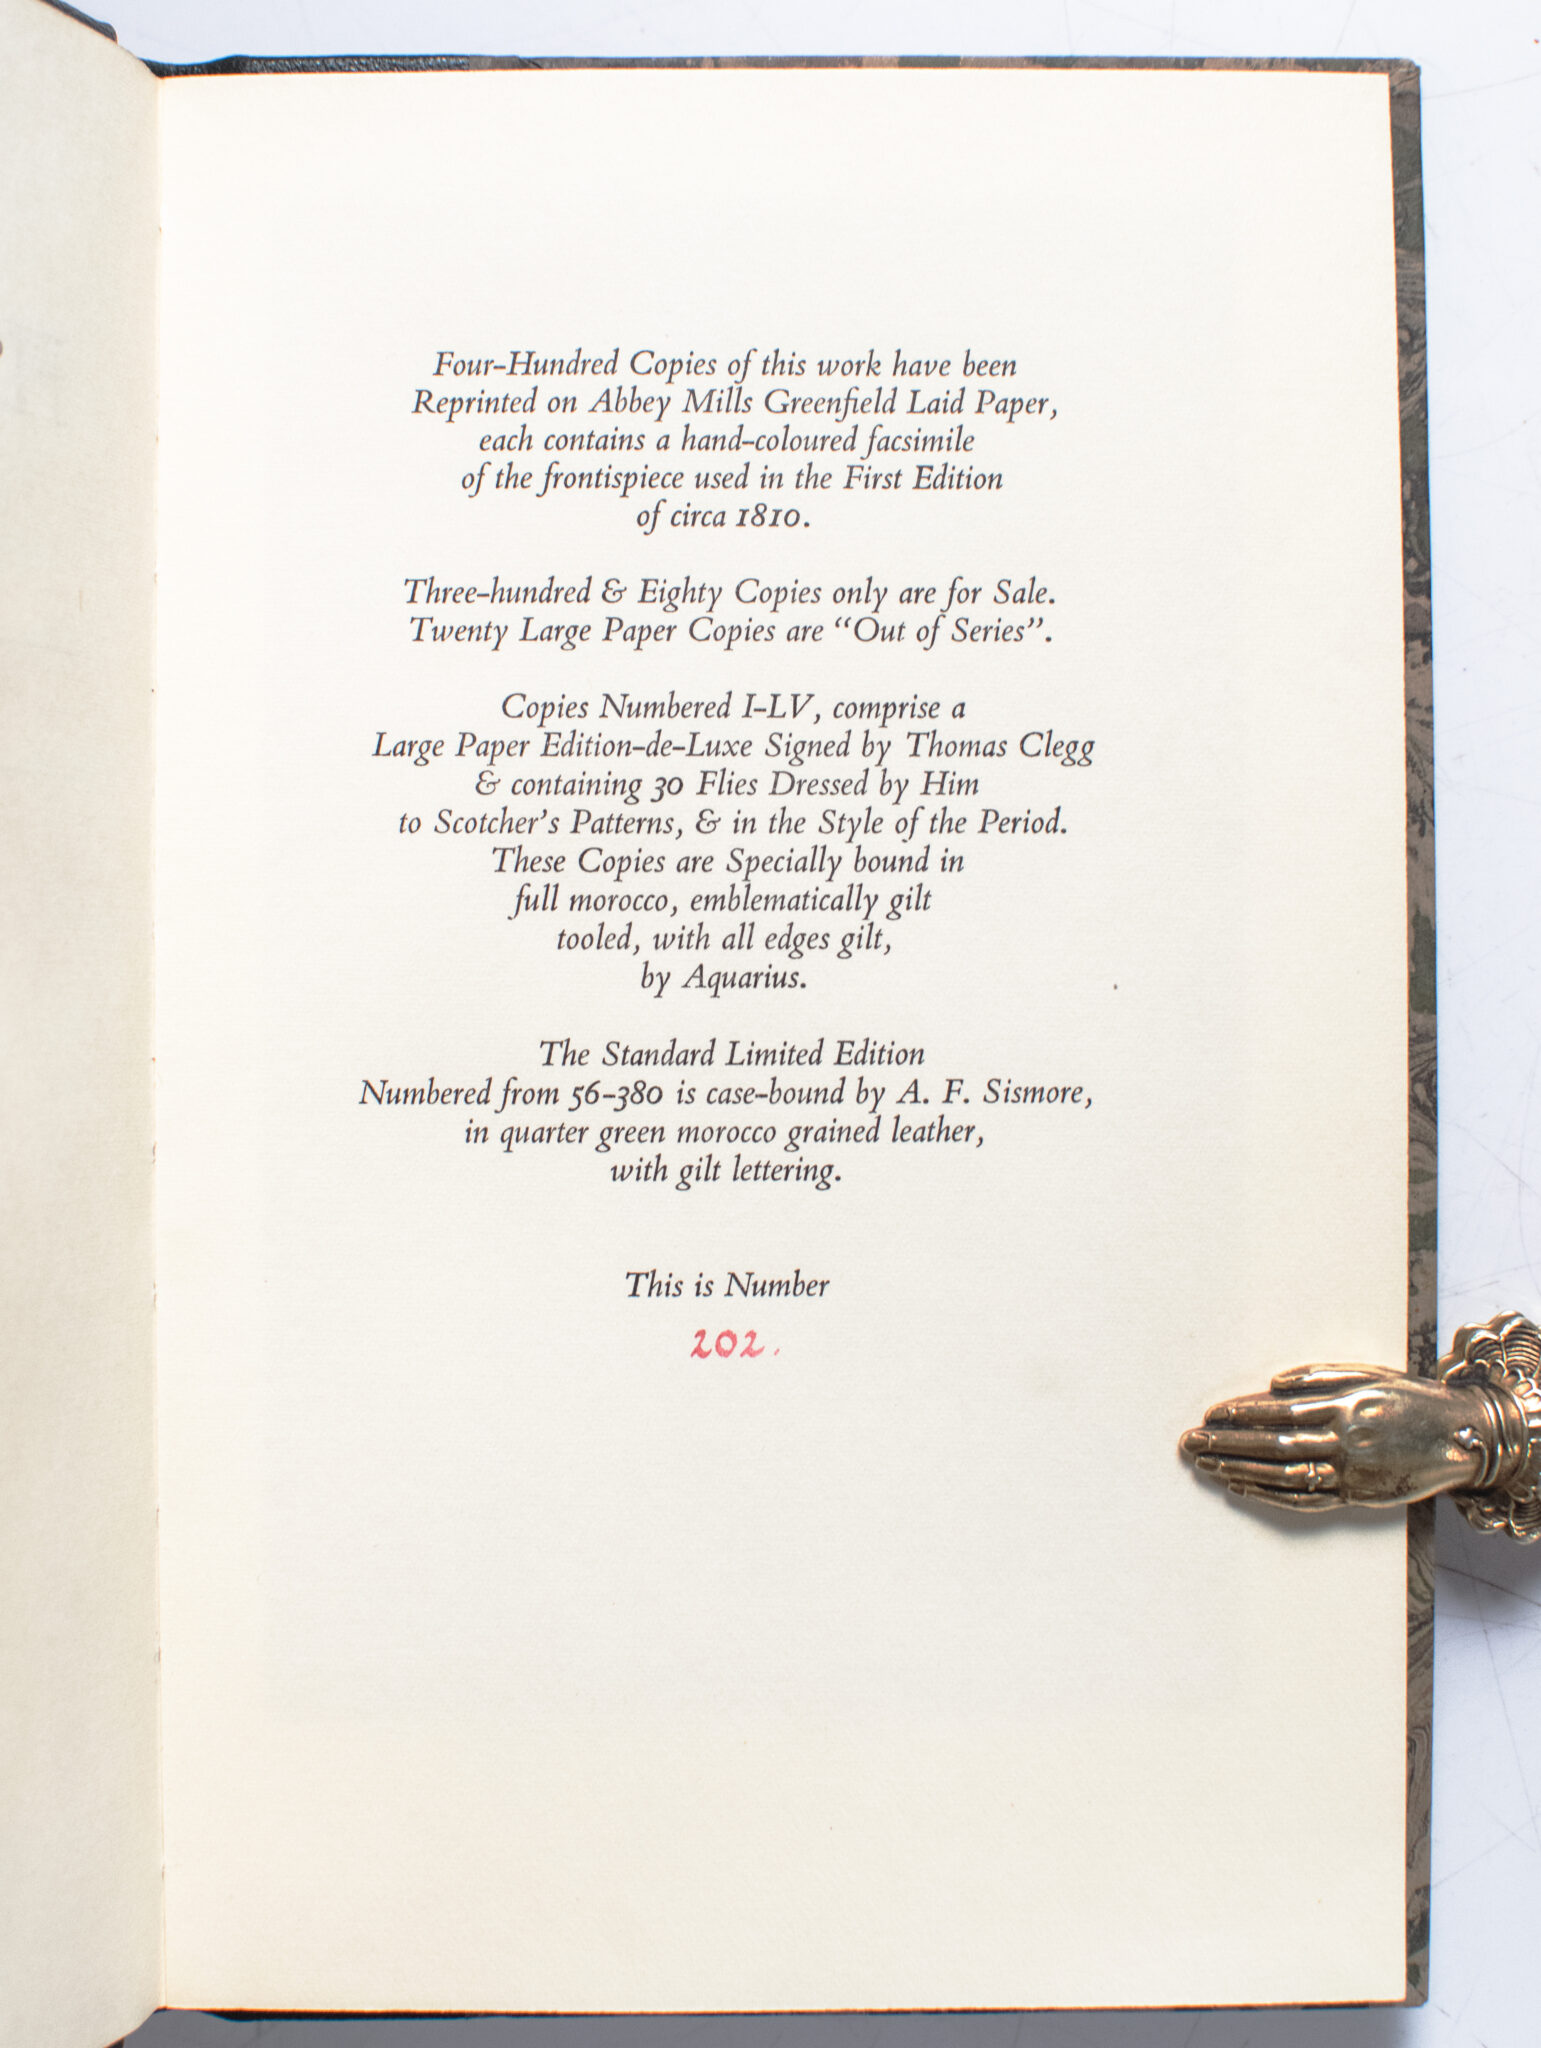 Four-Hundred Copies of this work have been
Reprinted on Abbey Mills Greenfield Laid Paper,
each contains a hand-coloured facsimile
of the frontispiece used in the First Edition
of circa 1810.
Three-hundred & Eighty Copies only are for Sale.
Twenty Large Paper Copies are “Out of Series”.
Copies Numbered I-LV, comprise a
Large Paper Edition-de-Luxe Signed by Thomas Clegg
& containing 30 Flies Dressed by Him
to Scotcher’s Patterns, & in the Style of the Period.
These Copies are Specially bound in
full morocco, emblematically gilt
tooled, with all edges gilt,
by Aquarius.
The Standard Limited Edition
Numbered from 56-380 is case-bound by A. F. Sismore,
in quarter green morocco grained leather,
with gilt lettering.
This is Number
202.